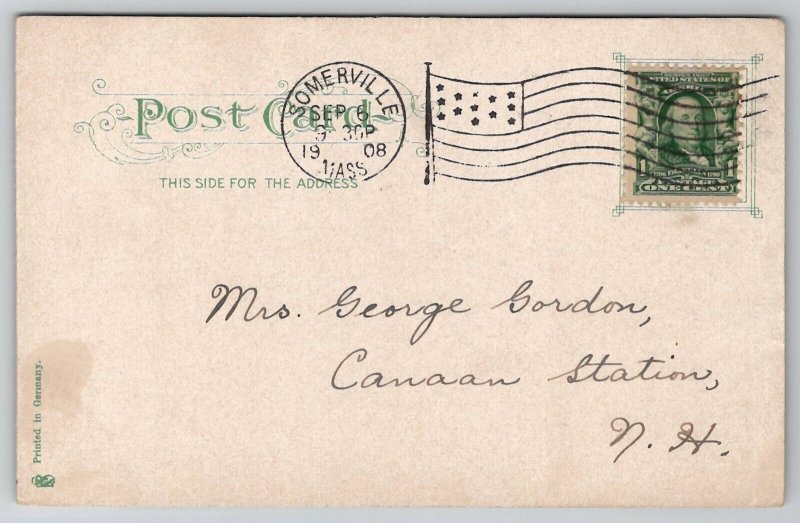 Post Card
THIS SIDE FOR THE ADDRESS
SOMERVILLE
SEP 6
9 30P
19 08
MASS
SERIES 1902
UNITED STATES OF
1
POSTAGE
ONE CENT
Mrs. George Gordon,
Canaan Station,
N. H.
Printed in Germany.